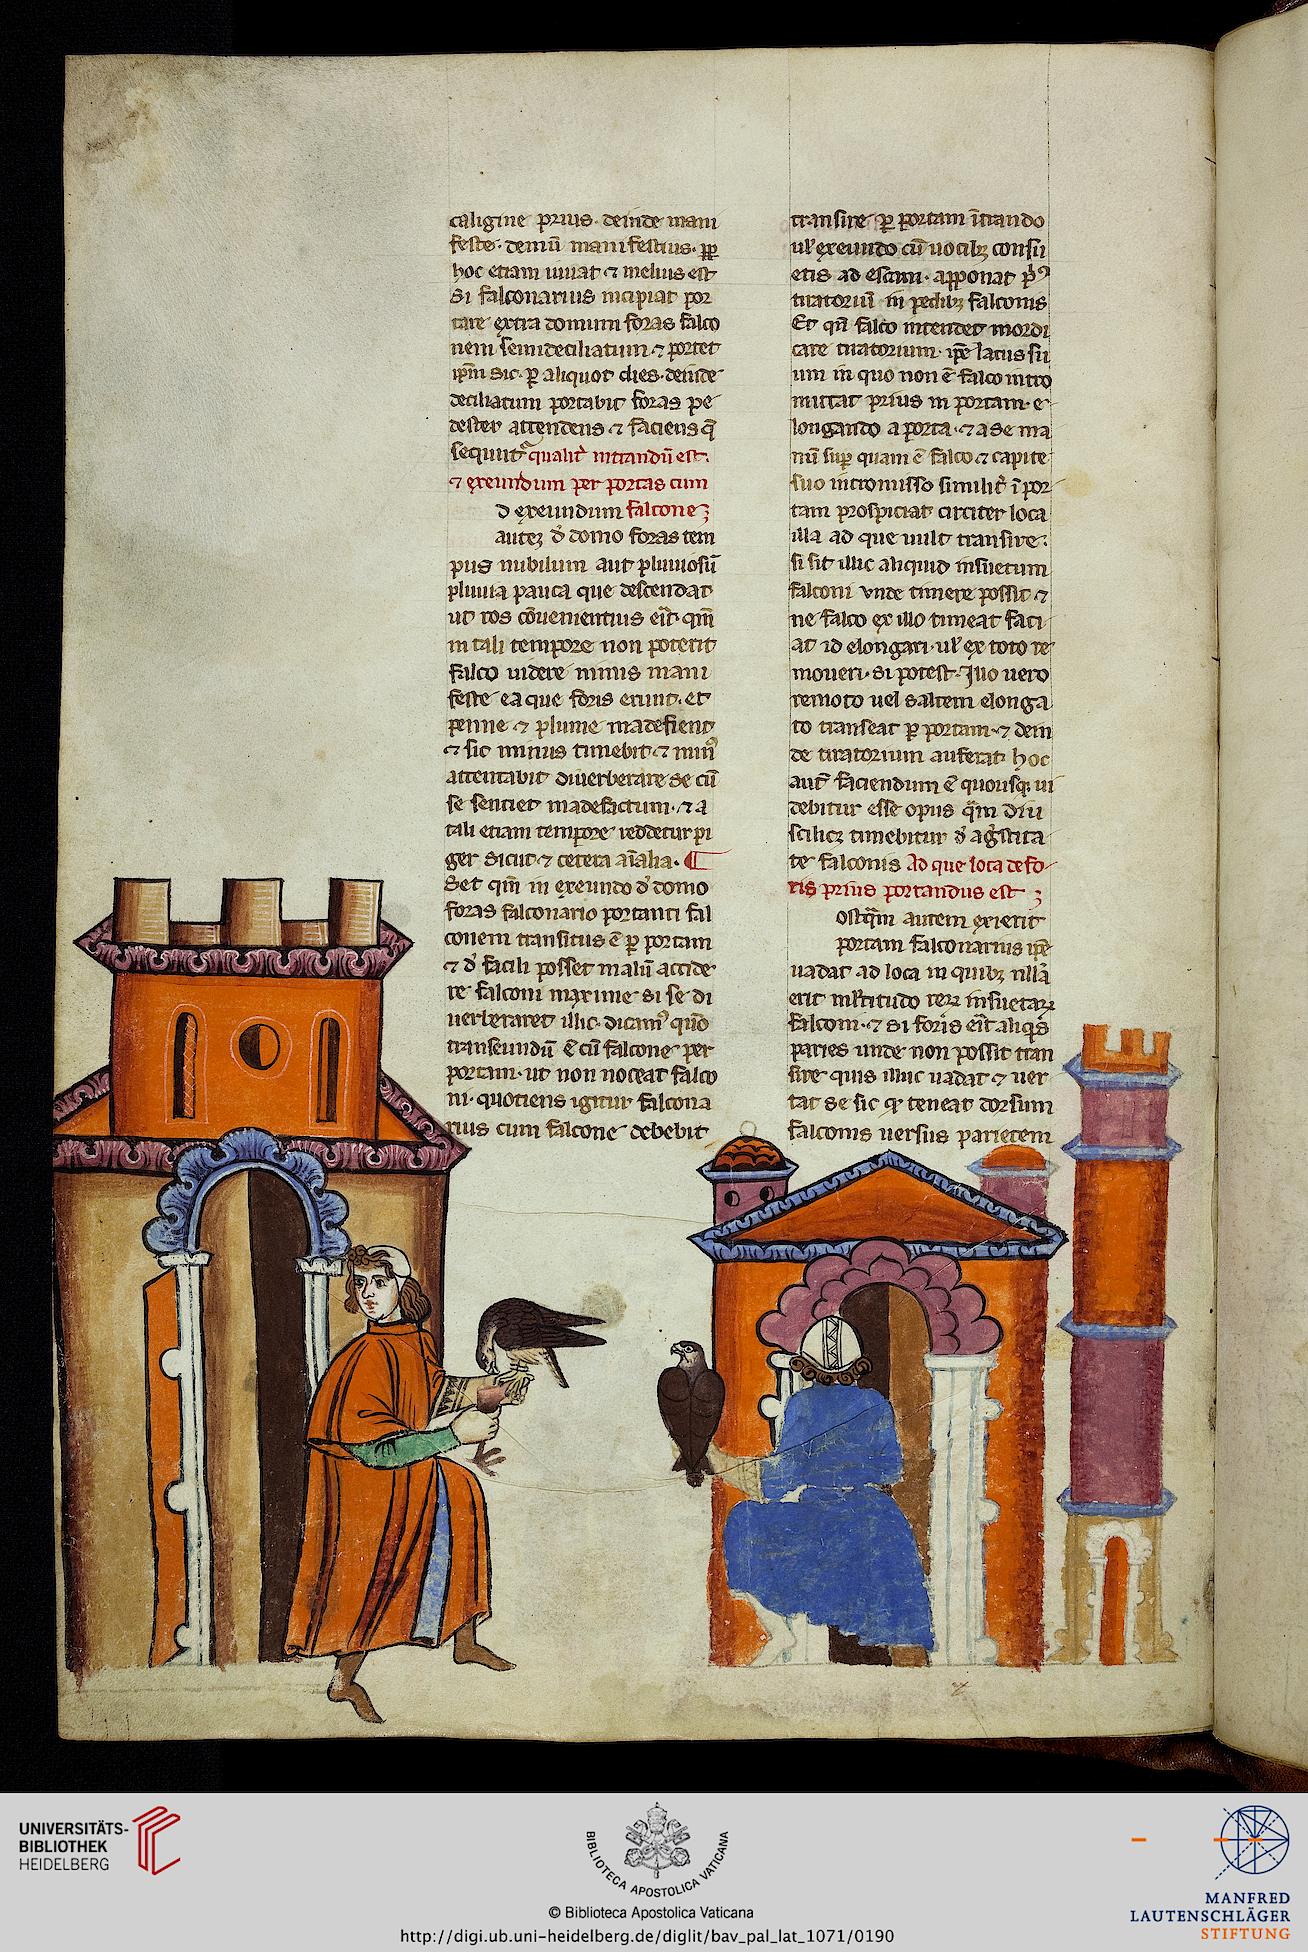 caligine prius. deinde mani
feste. demū manifestius. ꝓp
hoc etiam iuuat ⁊ melius est
si falconarius incipiat por
tare extra domum foras falco
nem semideciliatum ⁊ portet
ip̄m sic. ꝑ aliquot dies. deinde
deciliatum portabit foras pe
dester attendens ⁊ faciens q̄
sequūtᷣ qualit̉ intrandū est.
⁊ exeundum per portas cum
falcone
d exeundum
autē d̉ domo foras tem
pus nubilum aut pluuiosū
pluuia pauca que descendat
ut ros cōuenientius eit̉. qm̄
in tali tempore non poterit
falco uidere nimis mani
feste ea que foris erunt. et
penne ⁊ plume madefient
⁊ sic minus timebit ⁊ minꝰ
attentabit diuerberare se cū
se sentiet madefactum. ⁊ a
tali etiam tempore reddetur pi
ger sicut ⁊ cetera aīalia.
Set qm̄ in exeundo d̉ domo
foras falconario portanti fal
conem transitus ē ꝑ portam
⁊ d̉ facili posset malū accide
re falconi maxime si se di
uerberaret illic. dicamꝰ quō
transeundū ē cū falcone per
portam. ut non noceat falco
ni. quotiens igitur falcona
rius cum falcone debebit
transire ꝑ portam ītrando
ul̓ exeundo cū uocibꝫ consu
etis ad escam. apponat
tiratoriū in pedibꝫ falconis
Et qn̄ falco intendet mordi
care tiratorium. ip̄e latus su
um in quo non ē falco intro
mittat prius in portam. e
longando a porta. ⁊ a se ma
nū suꝑ quam ē falco ⁊ capite
suo intromisso similit̉ ī por
tam prospiciat circiter loca
illa ad que uult transire.
si sit illic aliquid insuetum
falconi vnde timere possit ⁊
ne falco ex illo timeat faci
at id elongari. ul̓ ex toto re
moueri. si potest. Illo uero
remoto uel saltem elonga
to transeat ꝑ portam. ⁊ dein
de tiratorium auferat hoc
aut̄ faciendum ē quousqꝫ ui
debitur esse opus qm̄ diu
scilicꝫ timebitur d̉ ag̉stita
te falconis Ad que loca de fo
ris prius portandus est
ostqm̄ autem exierit
portam falconarius ip̄e
uadat ad loca in quibꝫ nlla
erit ml̓titudo reꝝ insuetaꝝ
falconi. ⁊ si foris eit̉ aliqs
paries unde non possit tran
sire quis illuc uadat ⁊ uer
tat se sic ꝙ teneat dorsum
falconis uersus parietem
UNIVERSITÄTS-
BIBLIOTHEK
HEIDELBERG
BIBLIOTECA APOSTOLICA VATICANA
© Biblioteca Apostolica Vaticana
http://digi.ub.uni-heidelberg.de/diglit/bav_pal_lat_1071/0190
MANFRED
LAUTENSCHLÄGER
STIFTUNG